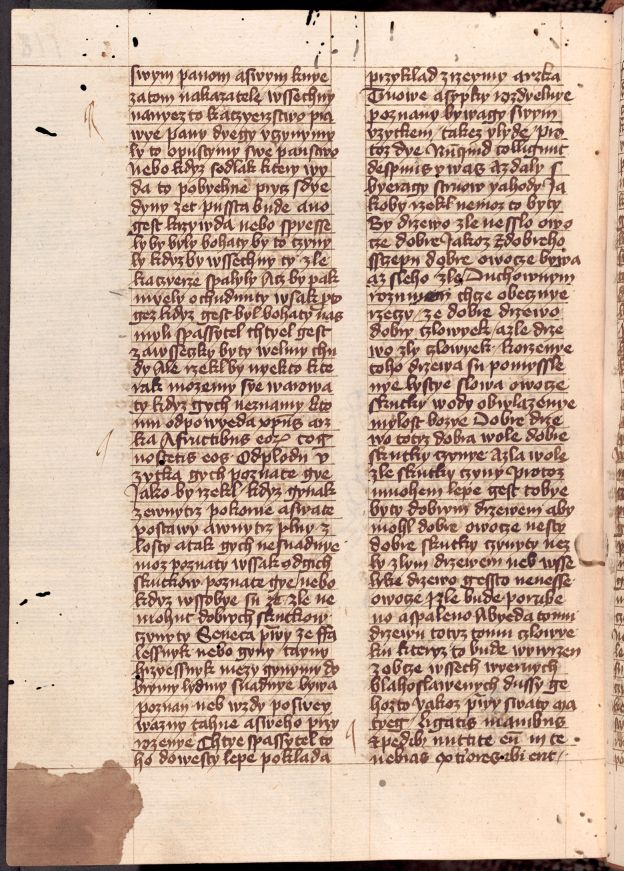 swym panom aswym knye
zatom nakazatele wssechny
nanyez to kaczyerzstwo pra
wye pany dyegy vgynymy
ly to opustymy swe panstwo
nebo kdyz sedlak ktery wy
da to pobyehne prycz sdye
dyny zet pussta bude ano
gest krzywda nebo spresse
ly by byly bohaty by to czyny
ly kdyzby wssechny ty zle
kaczyerze spalyly Acz by pak
myely ochudnuty wsak pto
gez kdyz gest byl bohaty nas
myly spassytel chtyel gest
zawssezky byty welmy chu
dy Ale rzekl by nyekto kte
rak mozemy sye warowa
ty kdyz gych neznamy kto
mu odpowyeda xpus arz
ka Afructibus eorz cog
noscetis eos Odplodu v
zytka gych poznate gye
Jako by rzekl kdyz gynak
zewnytrz pokorne aswate
postawy awnytrz plny z
losty atak gych nesnadnye
moz poznaty wsak odgich
skutkow poznate gye nebo
kdyz wssobye su zle ne
mohut dobrych skutkow
czynyty Seneca prawy ze ffa
lessnyk nebo gyny tayny
hrzyessnyk mezy gynymy do
brymy lydmy snadnye bywa
poznan neb wzdy poswey
wazny tahne asweho przy
rozenye Chtye spassytel to
ho dowesty lepe poklada
przyklad zrzeymy arzka
Trnowe asypky rozdyelnye
poznany bywagy swym
vzytkem takez ylyde pro
toz dye Nunquid colligunt
despinis ywas Azdaly s
byeragy strnow yahody Ja
koby rzekl nemoz to byty
By drzewo zle nesslo owo
cze dobre Jakoz Zdobreho
sszepu dobre owocze bywa
az sleho zle Duchownym
rozumem chze obecznye
rzeczy ze dobre drzewo
dobry czlowyek azle drze
wo zly czlowyek korzenye
toho drzewa su pomyssle
nye lystye slowa owocze
skutky wody obwlazenye
mylost bozye Dobre drze
wo totyz dobra wole dobre
skutky czynye Azla wole
zle skutky czyny Protoz
mnohem lepe gest tobye
byty dobrym drzewem aby
mohl dobre owocze nesty
dobre skutky czynyty nez
ly zlym drzewem neb wsse
lyke drzewo gessto nenesse
owocze zle bude porube
no aspaleno Abyeda tomu
drzewu totyz tomu czlowye
ku kteryz to bude wywrzen
zobcze wssech wyernych
blahoslawenych dussy ge
hozto yakoz prawy swaty ma
tyeg Ligatis manibus
&pedibus mittite eum in te
nebras exteriores vbi erit